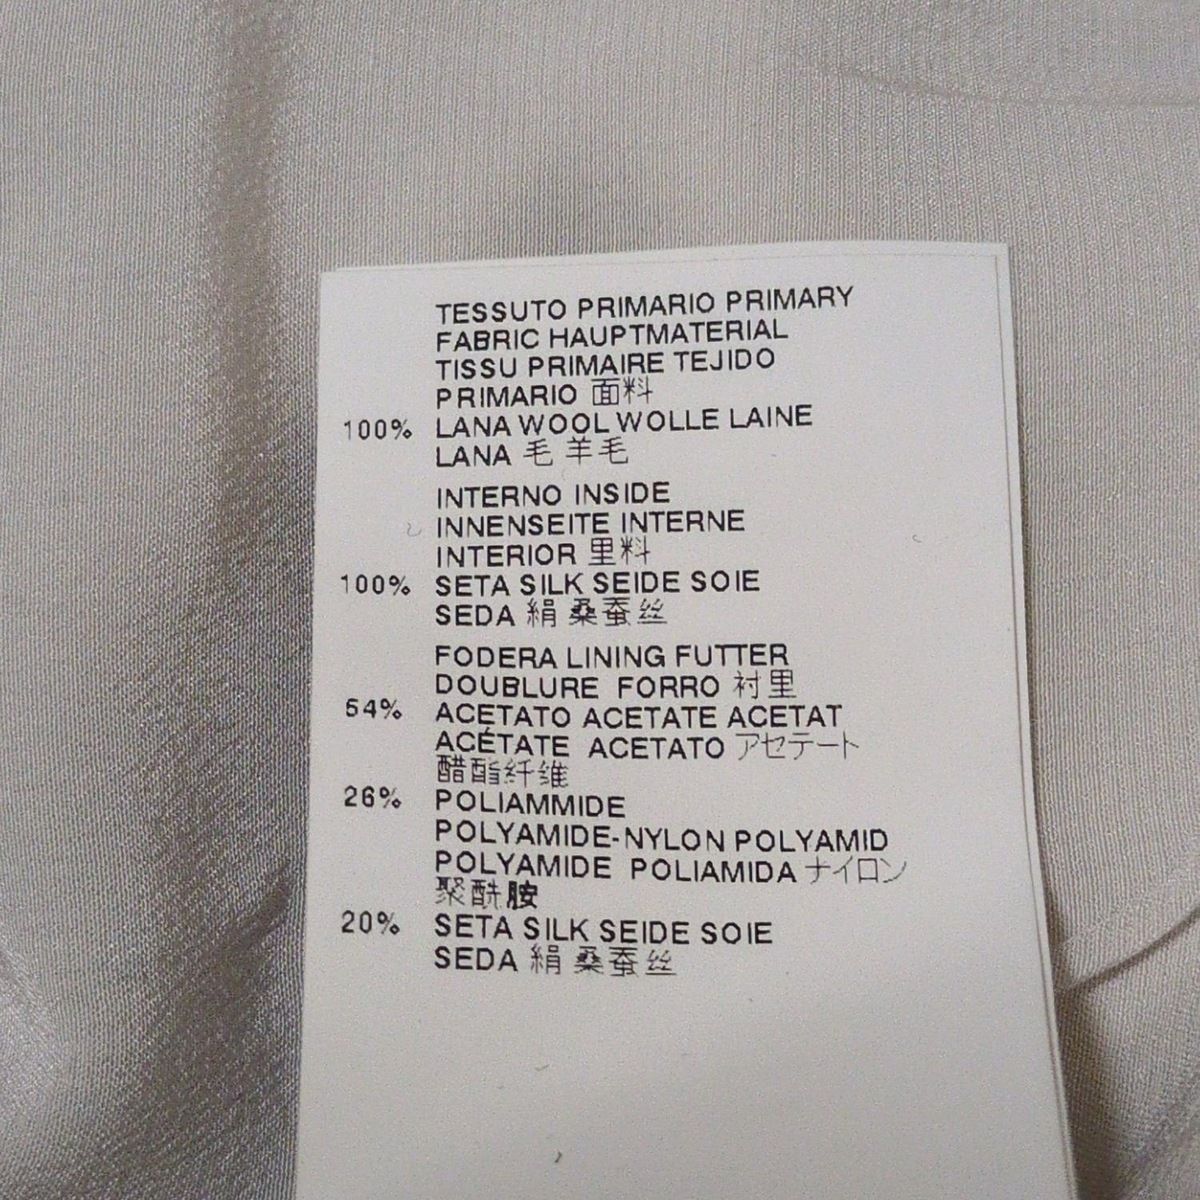 TESSUTO PRIMARIO PRIMARY
FABRIC HAUPTMATERIAL
TISSU PRIMAIRE TEJIDO
PRIMARIO 面料
100% LANA WOOL WOLLE LAINE
LANA 毛 羊毛
INTERNO INSIDE
INNENSEITE INTERNE
INTERIOR 里料
100% SETA SILK SEIDE SOIE
SEDA 絹 桑蚕丝
FODERA LINING FUTTER
DOUBLURE FORRO 衬里
54% ACETATO ACETATE ACETAT
ACÉTATE ACETATO アセテート
醋酯纤维
26% POLIAMMIDE
POLYAMIDE-NYLON POLYAMID
POLYAMIDE POLIAMIDA ナイロン
聚酰胺
20% SETA SILK SEIDE SOIE
SEDA 絹 桑蚕丝